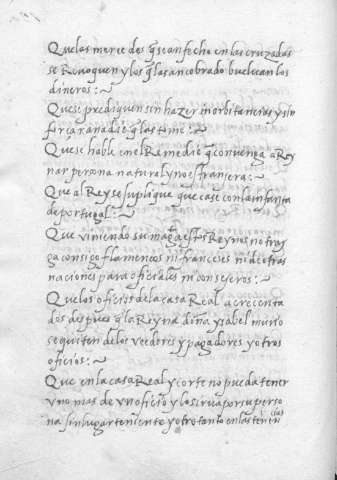 Que las merçedes q̃ se an fecho en las cruzadas
se Revoquen y los q̃ las an cobrado buelvan los
dineros :~
Que se prediquen sin hazer morbitanerias y sin
forçar a nadie q̃ las tome :~
Que se hable en el Remedio q̃ convenga a Rey
nar persona natural y no estranjera :~
Que al Rey se suplique que case con la infanta
de portugal :~
Que viniendo su mag̃ a estos Reynos no tray
ga consigo flamencos ni françeses ni de otras
naçiones para ofiçiales ni consejeros :~
Que los ofiçios de la casa Real acreçenta
dos despues q̃ la Reyna doña ysabel murio
se quiten de los veedores y pagadores y otros
ofiçios :~
Que en la casa Real y corte no pueda tener
vno mas de vn ofiçio y lo sirva por su perso
na sin lugar teniente y otro tanto en las